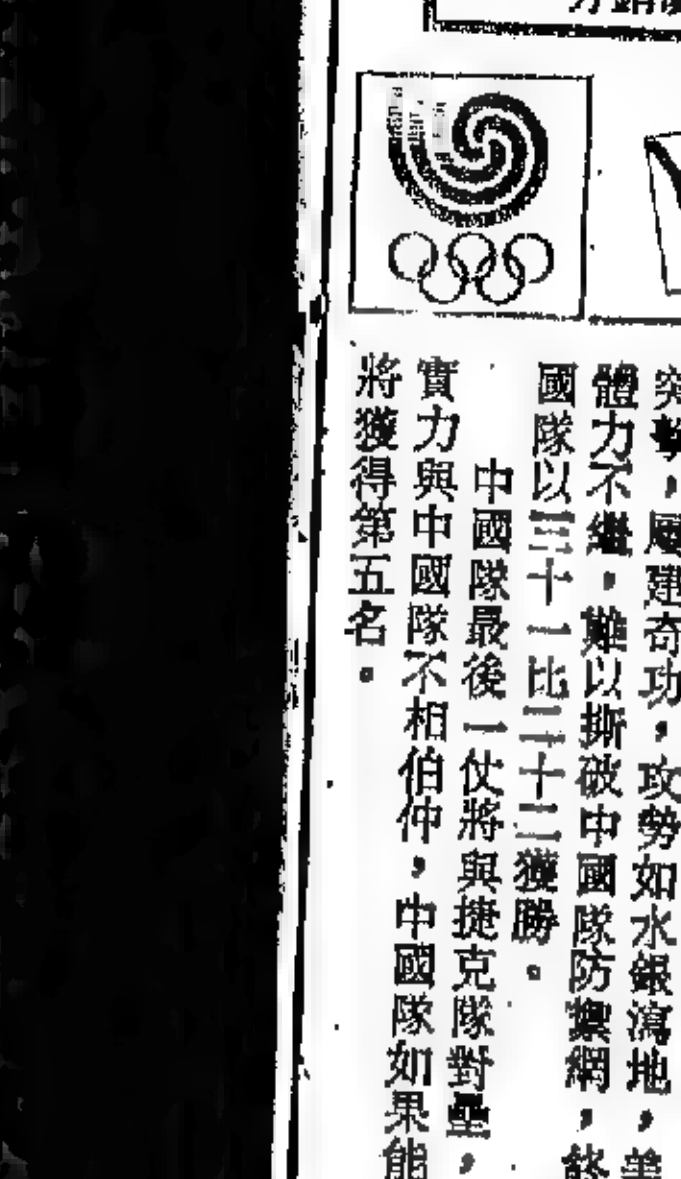 突擊，屢建奇功，攻勢如水銀瀉地，美
體力不繼，難以撕破中國隊防禦網，終
國隊以三十一比二十二獲勝。
中國隊最後一仗將與捷克隊對壘，
實力與中國隊不相伯仲，中國隊如果能
將獲得第五名。